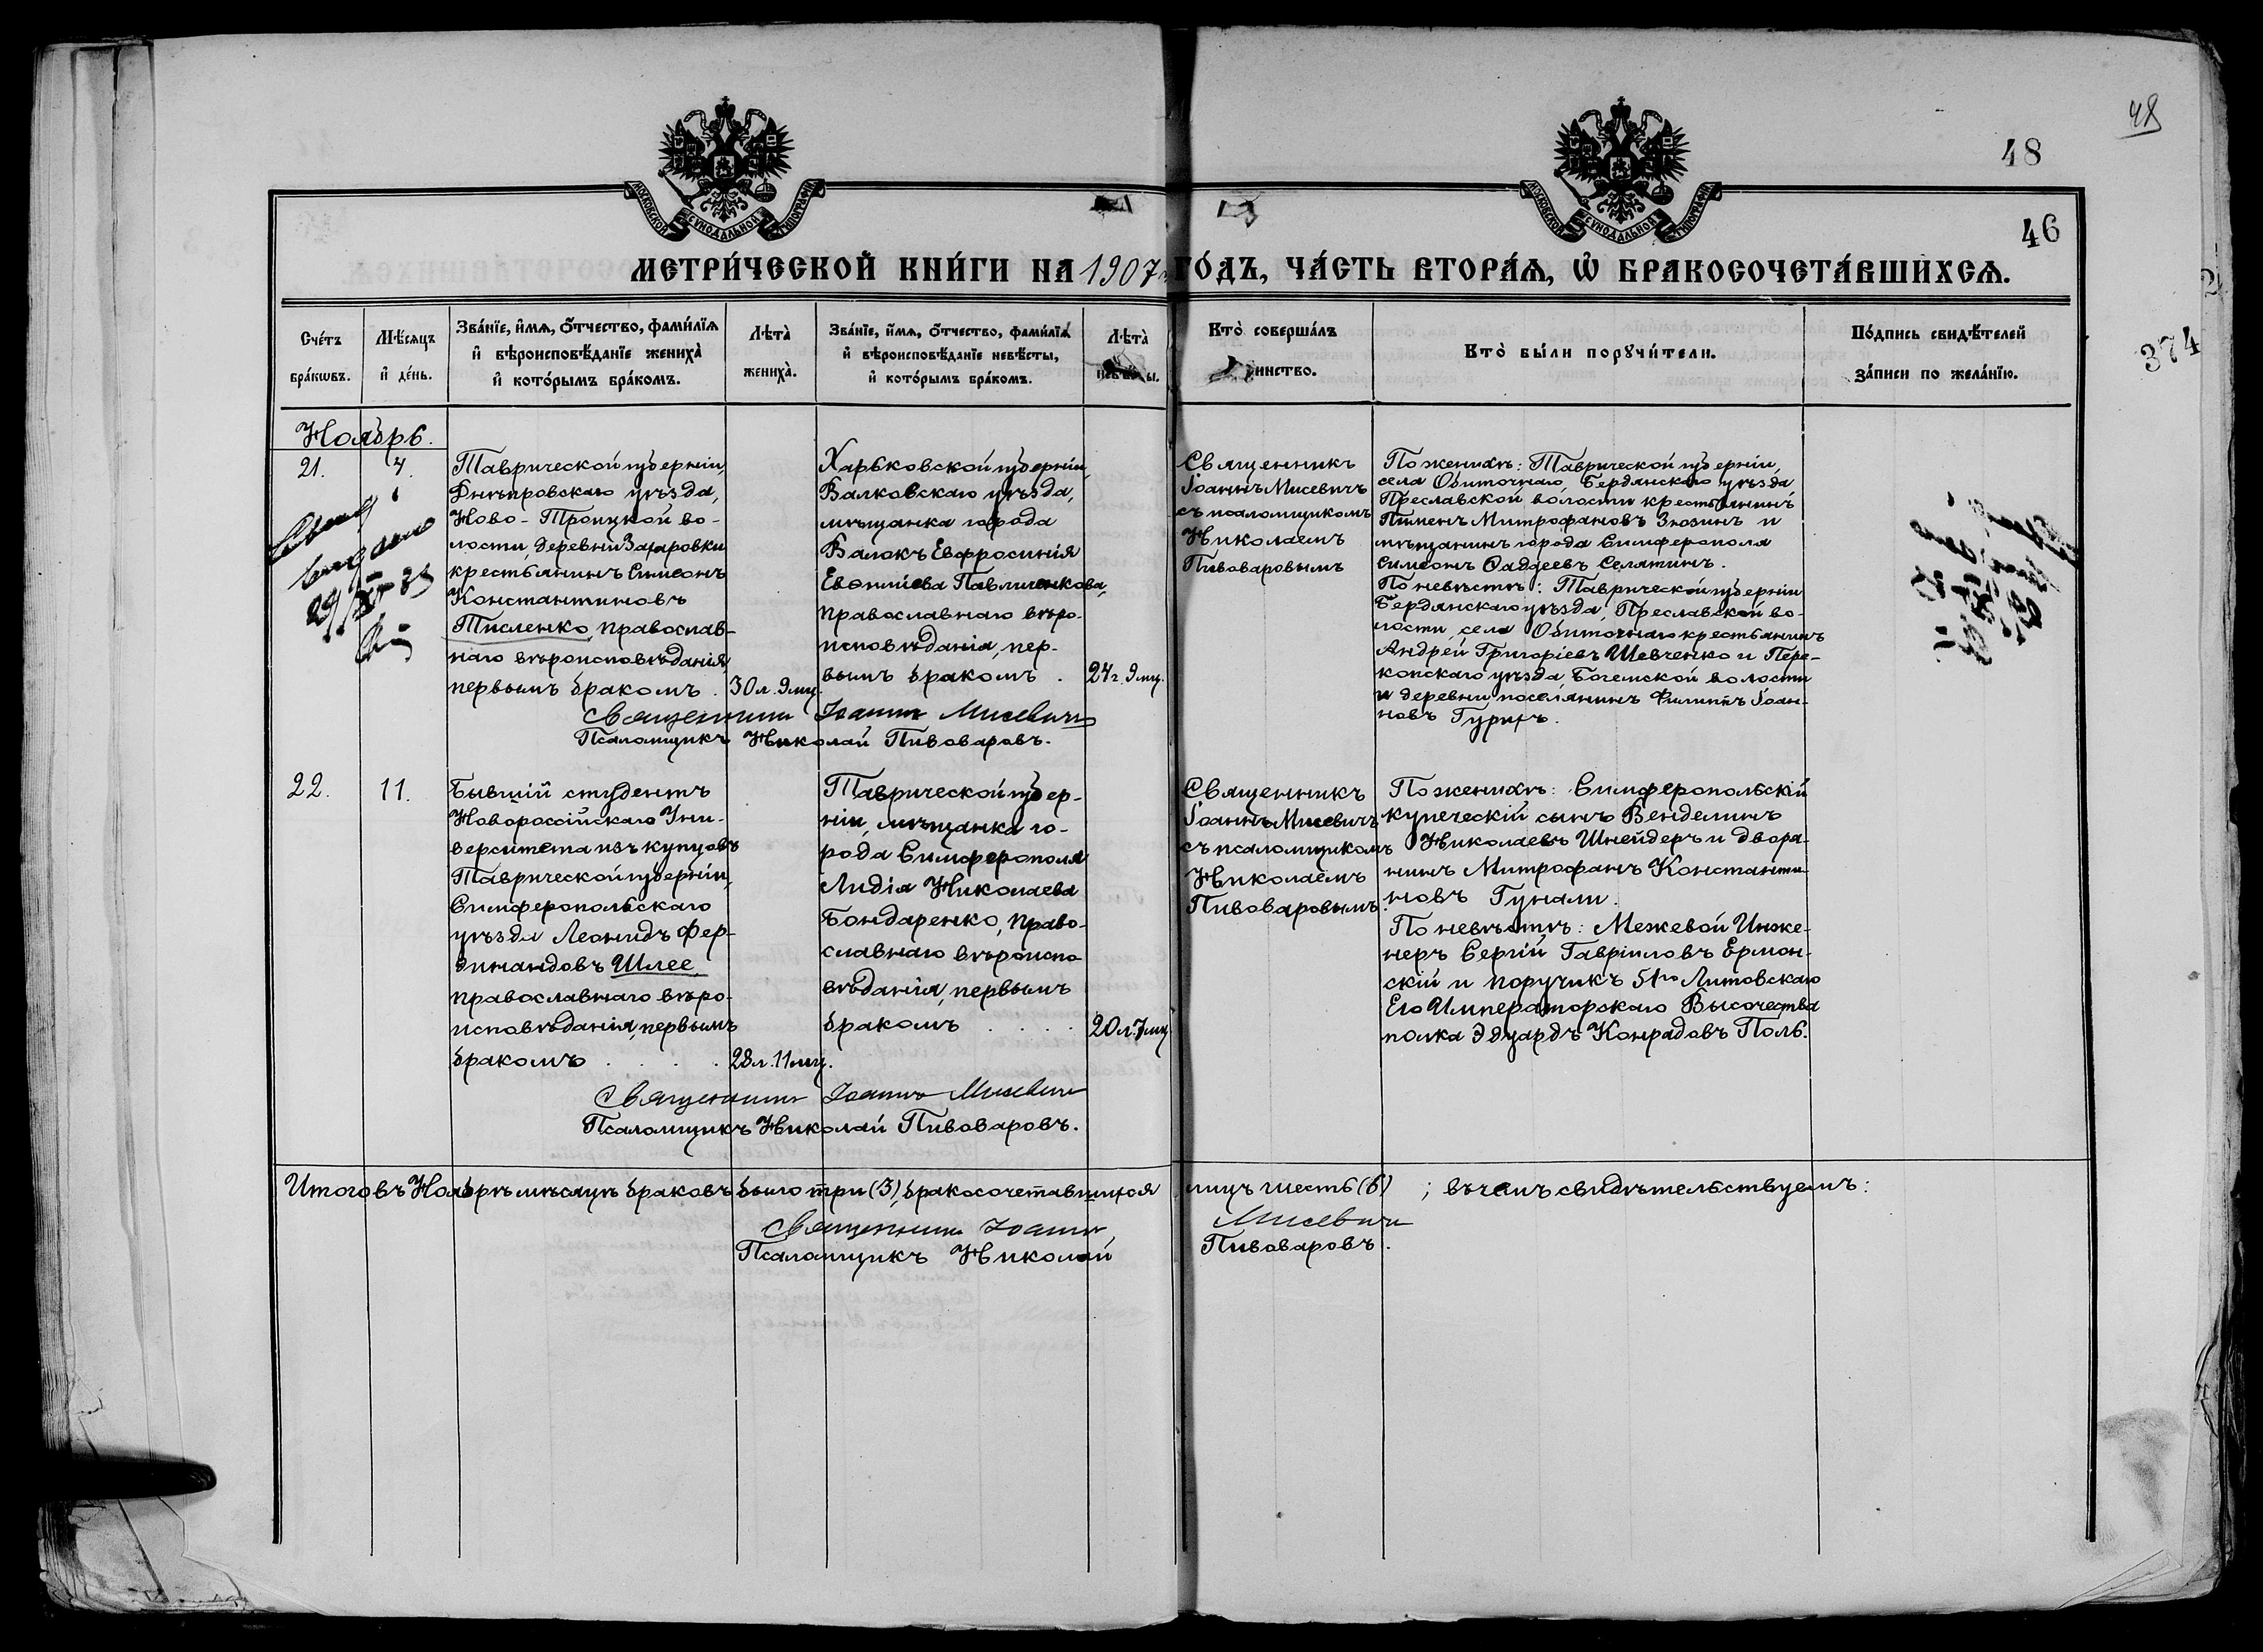 48
48
46
374
МОСКОВСКОЙ СѴНОДАЛЬНОЙ ТИПОГРАФІИ
МОСКОВСКОЙ СѴНОДАЛЬНОЙ ТИПОГРАФІИ
МЕТРИ́ЧЕСКОЙ КНИ́ГИ НА 1907 ГО́ДЪ, ЧА́СТЬ ВТОРА́Я, Ѡ БРАКОСОЧЕТА́ВШИХСЯ.
Сче́тъ
бра́кѡвъ.
Мѣ́сяцъ
и де́нь.
Зва́нїе, и́мя, ѻ҆́тчество, фами́лїя
и҆ вѣроисповѣ́данїе жениха̀
и҆ кото́рымъ бра́комъ.
Лѣта̀
жениха̀.
Зва́нїе, и́мя, ѻ҆́тчество, фами́лїя
и҆ вѣроисповѣ́данїе невѣ́сты,
и҆ кото́рымъ бра́комъ.
Лѣта̀
Кто̀ соверша́лъ
инство.
Кто̀ бы́ли порꙋчи́тели.
По́дпись свидѣ́телей
за́писи по жела́нїю.
Ноябрь.
21.
Таврической губерніи,
Днѣпровскаго уѣзда,
Ново-Троицкой во-
лости, деревни Захаровки
крестьянинъ Симеонъ
Константиновъ
Тисленко, православ-
наго вѣроисповѣданія
первымъ бракомъ.
30 л. 9 мц.
Харьковской губерніи,
Валковскаго уѣзда,
мѣщанка города
Валокъ Евфросинія
Евѳиміева Павличенкова,
православнаго вѣро-
исповѣданія, пер-
вымъ бракомъ.
24 г. 9 мц.
Священникъ
Іоаннъ Мисевичъ
съ псаломщикомъ
Николаемъ
Пивоваровымъ
По женихѣ: Таврической губерніи,
села Обиточнаго, Бердянскаго уѣзда
Преславской волости крестьянинъ
Пименъ Митрофановъ Зюзинъ и
мѣщанинъ города Симферополя
Симеонъ Фаддеевъ Селятинъ.
По невѣстѣ: Таврической губерніи
Бердянскаго уѣзда, Преславской во-
лости, села Обиточнаго крестьянинъ
Андрей Григоріевъ Шевченко и Пере-
копскаго уѣзда, Богемской волости
и деревни, поселянинъ Филиппъ Іоан-
новъ Гурихъ.
Священникъ Іоаннъ Мисевичъ
Псаломщикъ Николай Пивоваровъ.
22.
11.
Бывшій студентъ
Новороссійскаго Уни-
верситета изъ купцовъ
Таврической губерніи,
Симферопольскаго
уѣзда Леонидъ Фер-
динандовъ Шлее,
православнаго вѣро-
исповѣданія, первымъ
бракомъ . . . .
28 л. 11 мц.
Таврической губер-
ніи, мѣщанка го-
рода Симферополя
Лидія Николаева
Бондаренко, право-
славнаго вѣроиспо
вѣданія, первымъ
бракомъ . . . .
20 л. 7 мц
Священникъ
Іоаннъ Мисевичъ
съ псаломщикомъ
Николаемъ
Пивоваровымъ.
По женихѣ: Симферопольскій
купеческій сынъ Венделинъ
Николаевъ Шнейдеръ и дворя-
нинъ Митрофанъ Константи-
новъ Гунали.
По невѣстѣ: Межевой Инже-
неръ Сергій Гавріиловъ Ермон-
скій и поручикъ 51го Литовскаго
Его Императорскаго Высочества
полка Эдуардъ Конрадовъ Поль.
Священникъ Іоаннъ Мисевичъ
Псаломщикъ Николай Пивоваровъ.
Итого въ Ноябрѣ мѣсяцѣ браковъ было три (3), бракосочетавшихся лицъ шесть (6); въ чемъ свидѣтельствуемъ:
Священникъ Іоаннъ Мисевичъ
Псаломщикъ Николай Пивоваровъ.